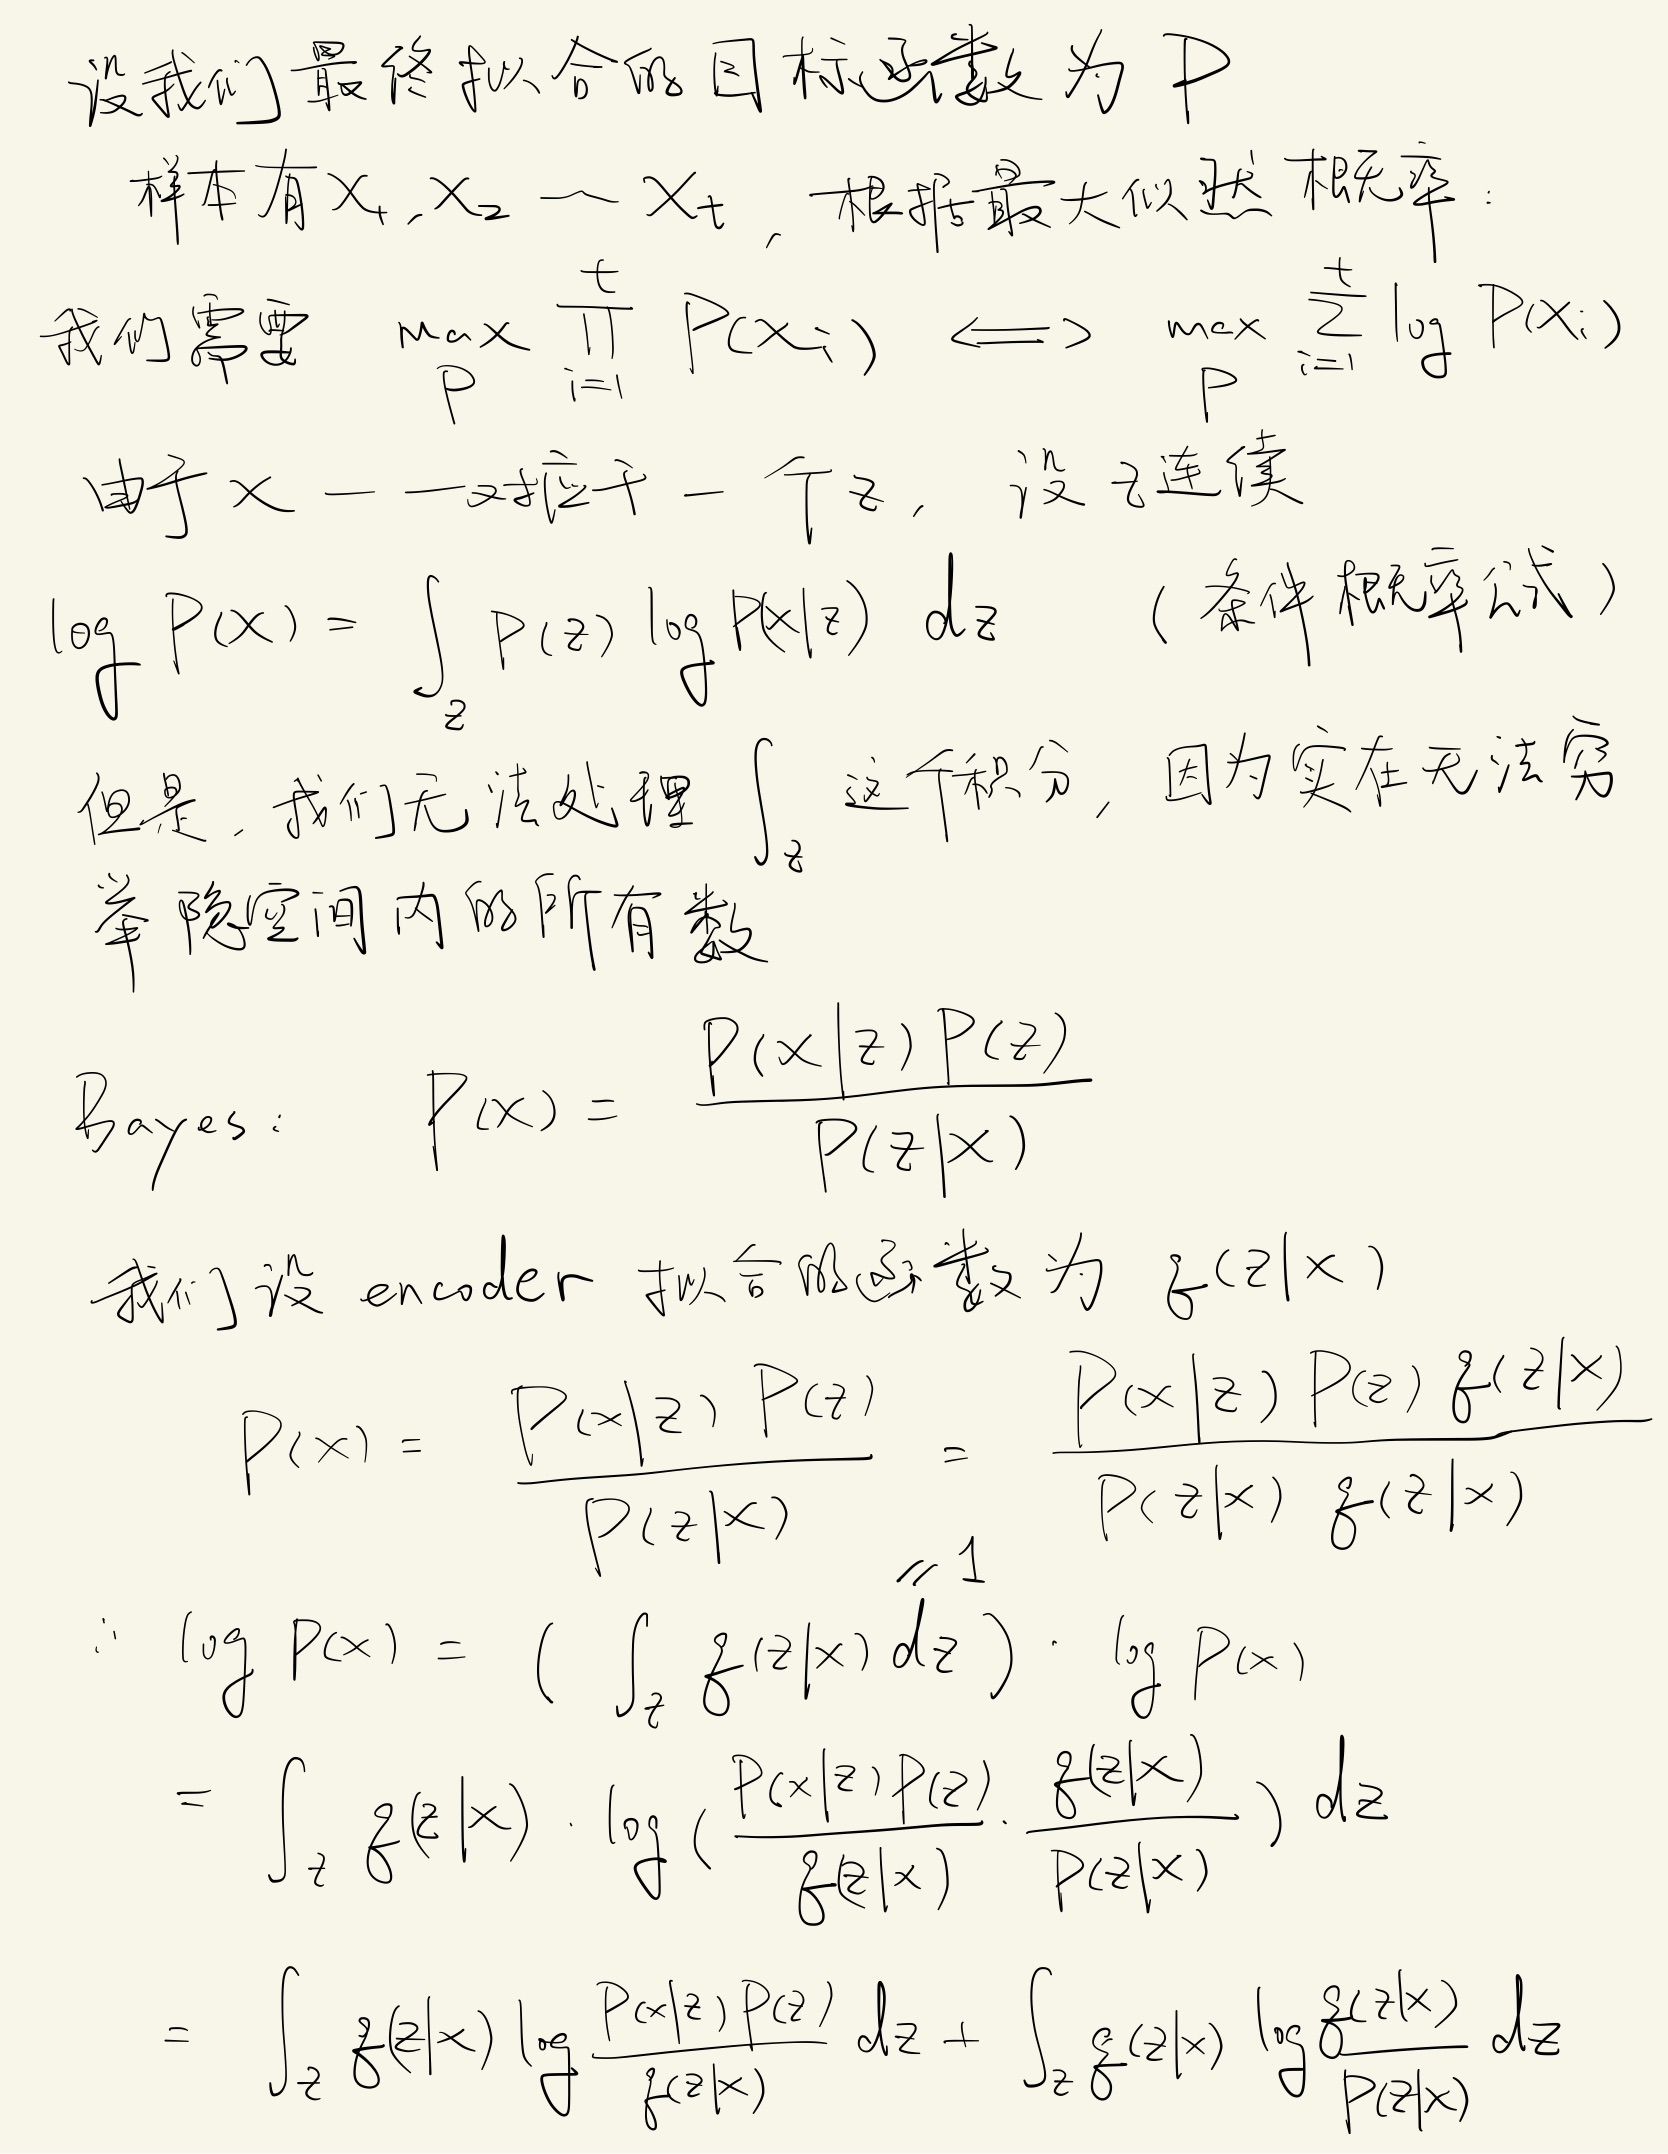 设我们最终拟合的目标函数为 P
样本有 X₁, X₂ ~ Xₜ, 根据最大似然概率:
我们需要 max_P ∏_{i=1}^{t} P(Xᵢ) <=> max_P ∑_{i=1}^{t} log P(Xᵢ)
由于 x 一一对应于一个 z, 设 z 连续
log P(X) = ∫_z P(z) log P(x|z) dz (条件概率公式)
但是, 我们无法处理 ∫_z 这个积分, 因为实在无法穷
举隐空间内的所有数
Bayes: P(X) = P(x|z) P(z) / P(z|x)
我们设 encoder 拟合的函数为 q(z|x)
P(x) = P(x|z) P(z) / P(z|x) = P(x|z) P(z) q(z|x) / P(z|x) q(z|x)
∴ log P(x) = ( ∫_z q(z|x) dz ) · log P(x)
= 1
= ∫_z q(z|x) · log ( P(x|z) P(z) / q(z|x) · q(z|x) / P(z|x) ) dz
= ∫_z q(z|x) log P(x|z) P(z) / q(z|x) dz + ∫_z q(z|x) log q(z|x) / P(z|x) dz